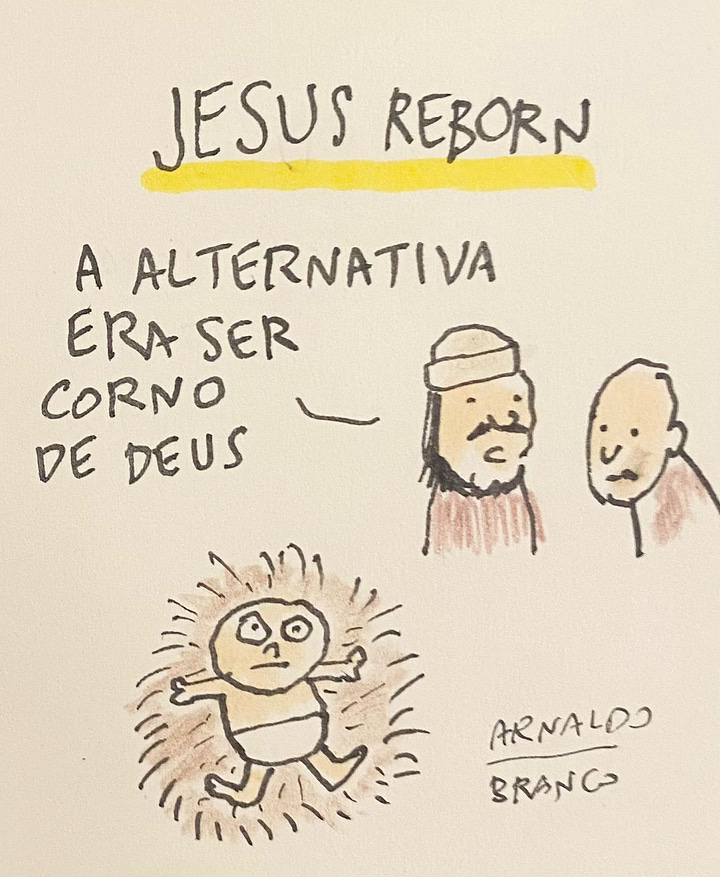 JESUS REBORN
A ALTERNATIVA
ERA SER
CORNO
DE DEUS
ARNALDO
BRANCO